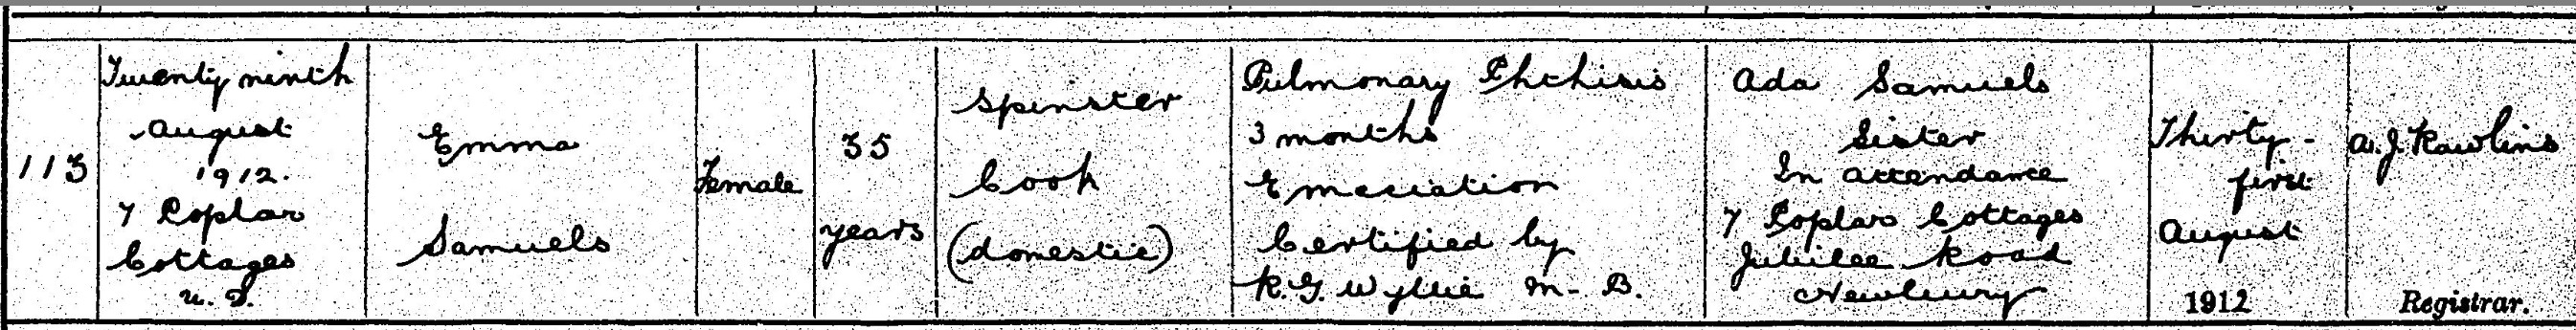 113
Twenty ninth
August
1912.
7 Poplar
Cottages
U. D.
Emma
Samuels
Female
35
years
Spinster
Cook
(domestic)
Pulmonary Phthisis
3 months
Emaciation
Certified by
R. G. Wyllie M. B.
Ada Samuels
Sister
In attendance
7 Poplar Cottages
Jubilee Road
Newbury
Thirty-
first
August
1912
A. J. Rawlins
Registrar.